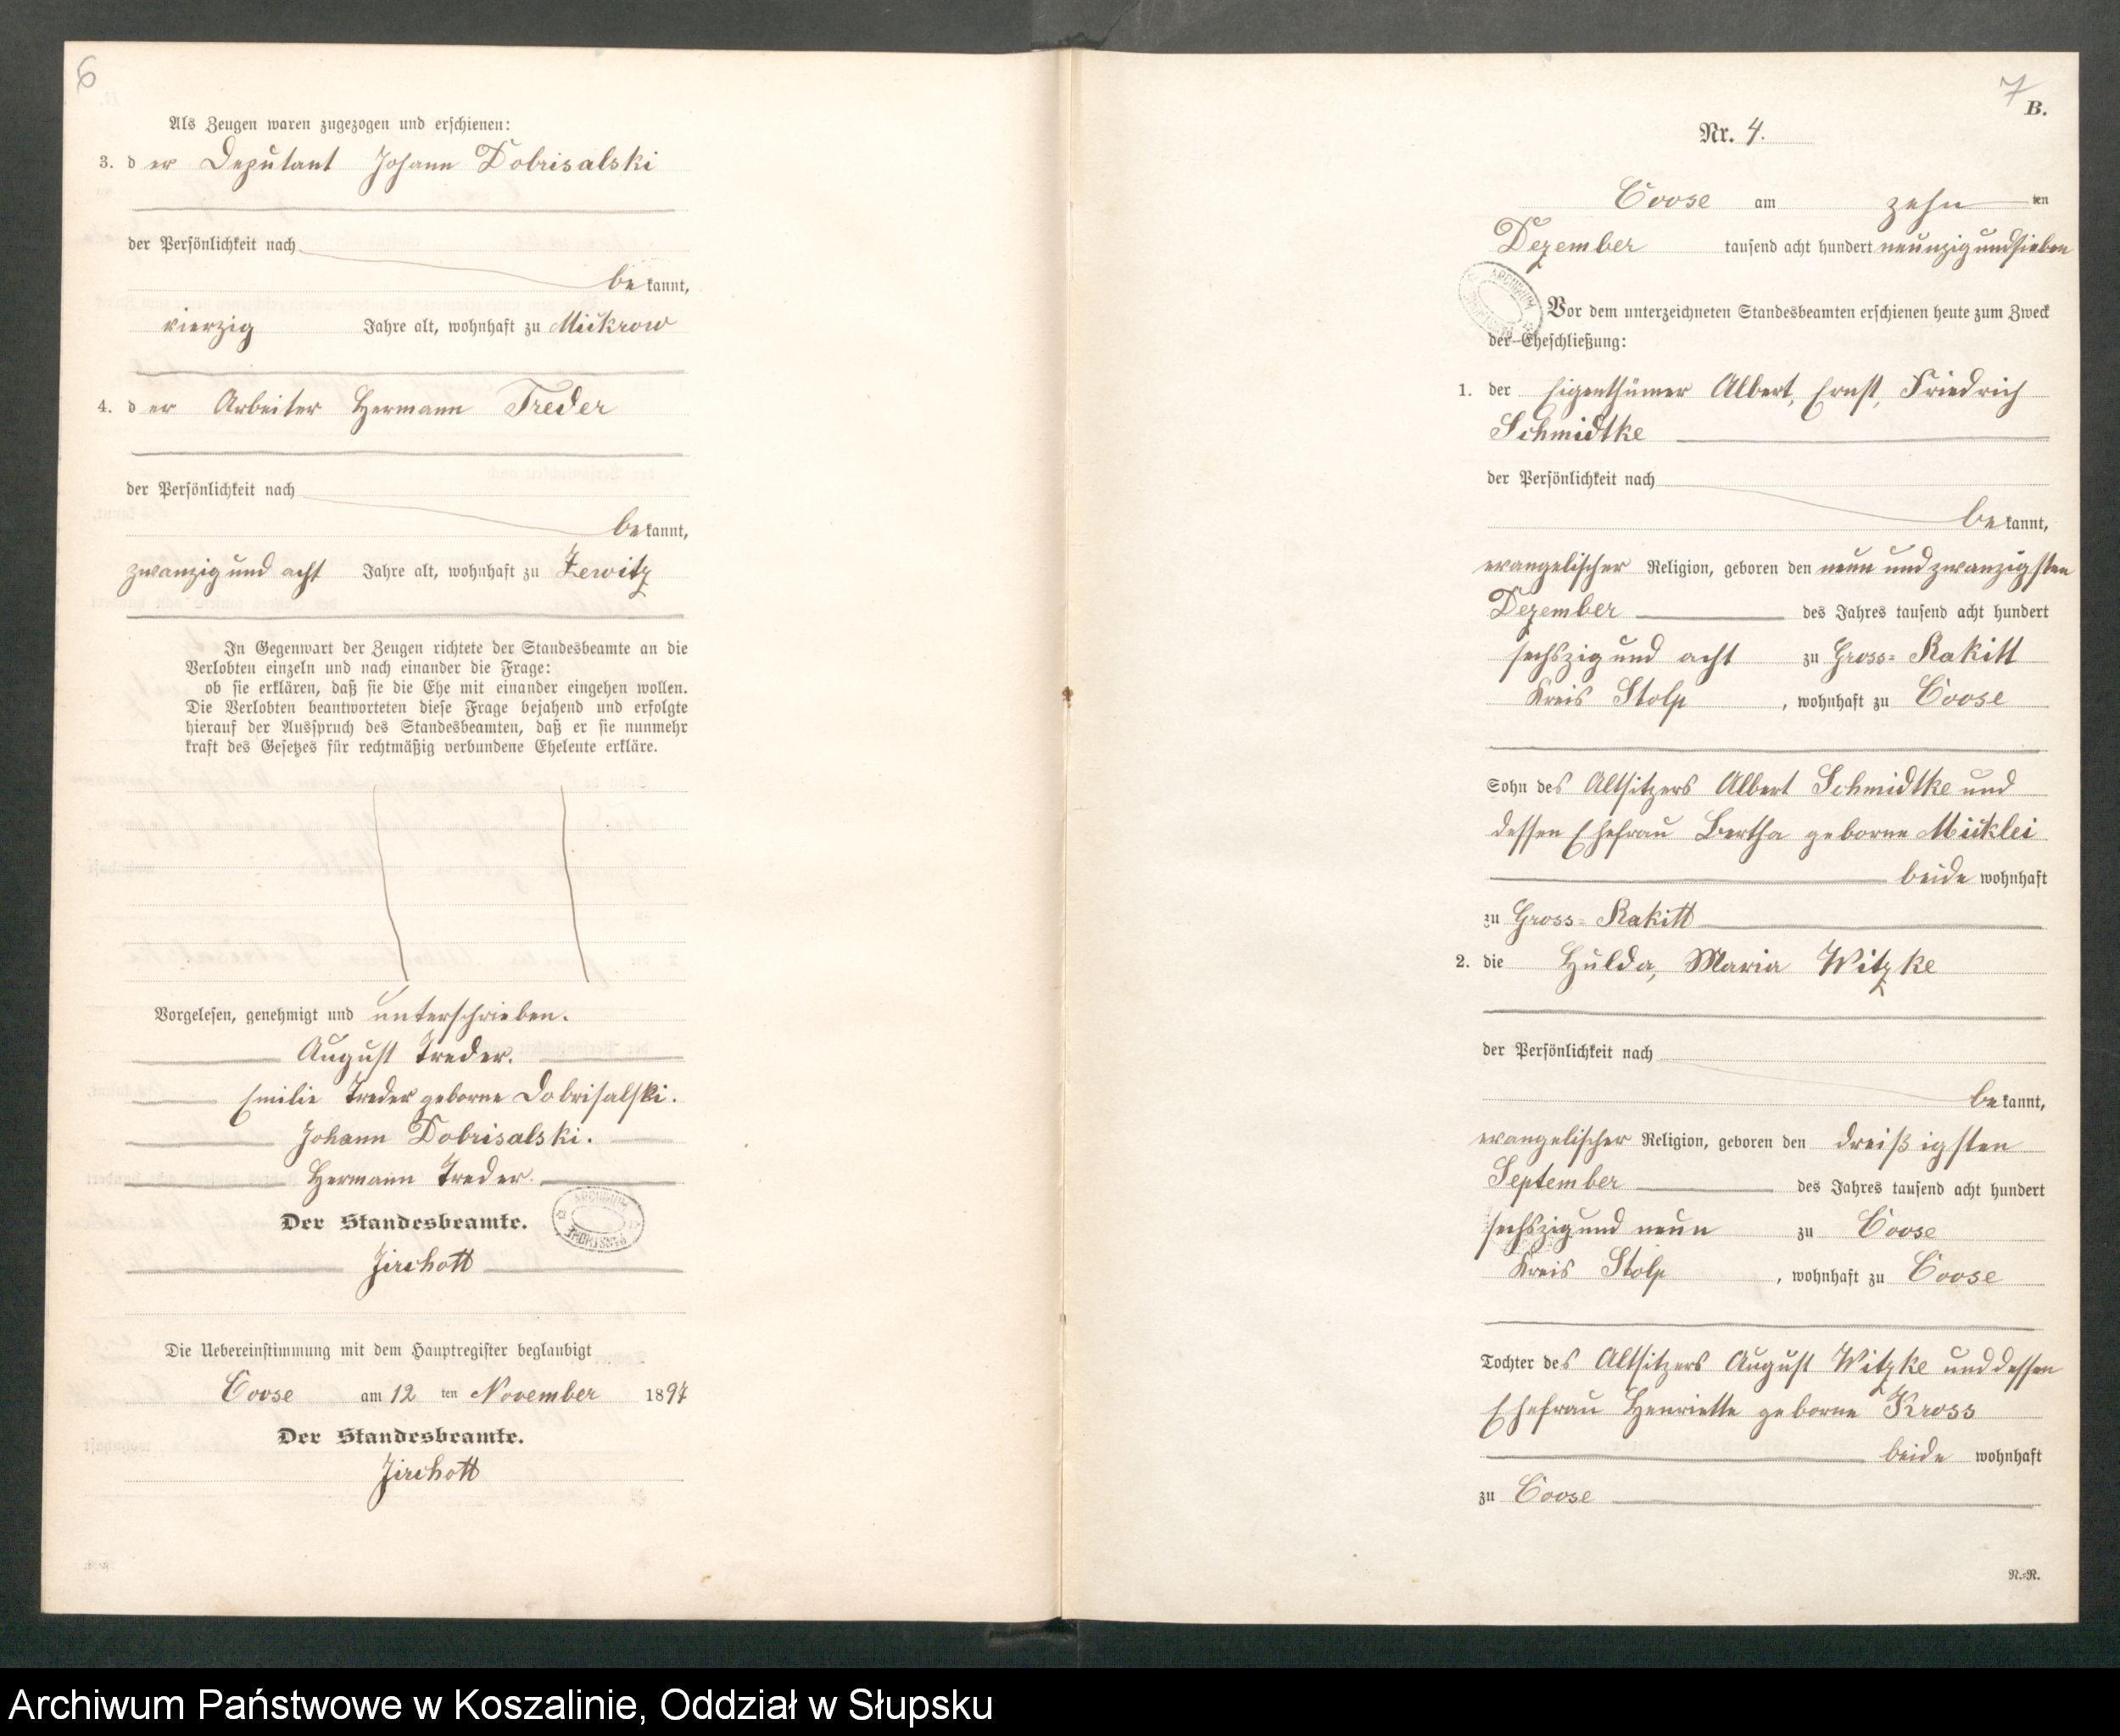 6
Als Zeugen waren zugezogen und erschienen:
3. der Deputant Johann Dobrisalski
der Persönlichkeit nach
bekannt,
vierzig Jahre alt, wohnhaft zu Mickrow
4. der Arbeiter Hermann Treder
der Persönlichkeit nach
bekannt,
zwanzig und acht Jahre alt, wohnhaft zu Zewitz
In Gegenwart der Zeugen richtete der Standesbeamte an die
Verlobten einzeln und nach einander die Frage:
ob sie erklären, daß sie die Ehe mit einander eingehen wollen.
Die Verlobten beantworteten diese Frage bejahend und erfolgte
hierauf der Ausspruch des Standesbeamten, daß er sie nunmehr
kraft des Gesetzes für rechtmäßig verbundene Eheleute erkläre.
Vorgelesen, genehmigt und unterschrieben.
August Treder.
Emilie Treder geborne Dobrisalski.
Johann Dobrisalski.
Hermann Treder.
Der Standesbeamte.
Jirchott
Die Uebereinstimmung mit dem Hauptregister beglaubigt
Coose am 12 ten November 1897
Der Standesbeamte.
Jirchott
7
B.
Nr. 4.
Coose am zehn ten
Dezember tausend acht hundert neunzig und sieben
Vor dem unterzeichneten Standesbeamten erschienen heute zum Zweck
der Eheschließung:
1. der Eigenthümer Albert, Ernst, Friedrich
Schmidtke
der Persönlichkeit nach
bekannt,
evangelischer Religion, geboren den neun und zwanzigsten
Dezember des Jahres tausend acht hundert
sechszig und acht zu Gross-Rakitt
Kreis Stolp, wohnhaft zu Coose
Sohn des Altsitzers Albert Schmidtke und
dessen Ehefrau Bertha geborne Micklei
beide wohnhaft
zu Gross-Rakitt
2. die Hulda, Maria Witzke
der Persönlichkeit nach
bekannt,
evangelischer Religion, geboren den dreißigsten
September des Jahres tausend acht hundert
sechszig und neun zu Coose
Kreis Stolp, wohnhaft zu Coose
Tochter des Altsitzers August Witzke und dessen
Ehefrau Henriette geborne Kross
beide wohnhaft
zu Coose
N.-R.
Archiwum Państwowe w Koszalinie, Oddział w Słupsku